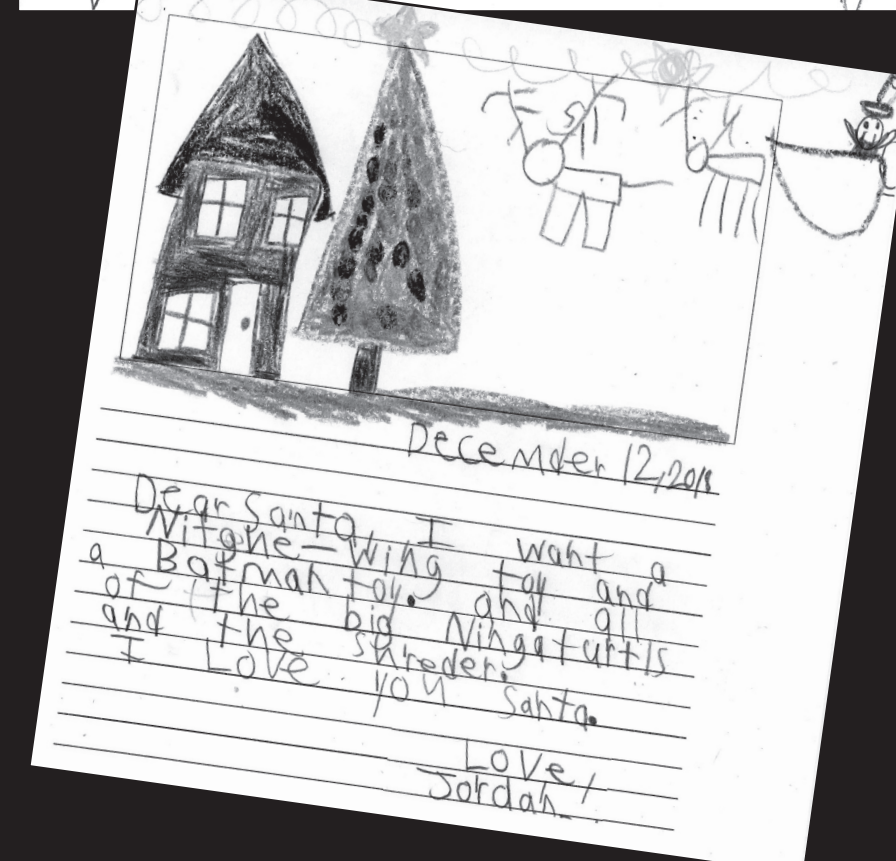 December 12, 2018
Dear Santa I want a
Nitghe-Wing toy and
a Batman toy. and all
of the big Ningaturtls
and the shreder.
I Love you Santa.
Love,
Jordan